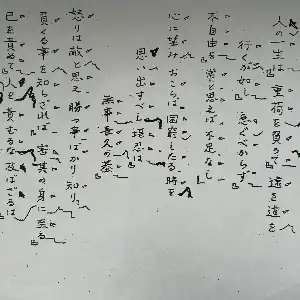 人の一生は重荷を負うて遠き道を
行くが如し急ぐべからず
不自由を常と思えば不足なし
心に望みおこらば困窮したる時を
思い出すべし堪忍は
無事長久の基
怒りは敵と思え勝つ事ばかり知りて
負くる事を知らざれば害其の身に至る
己を責めて人を責むるな及ばざるは